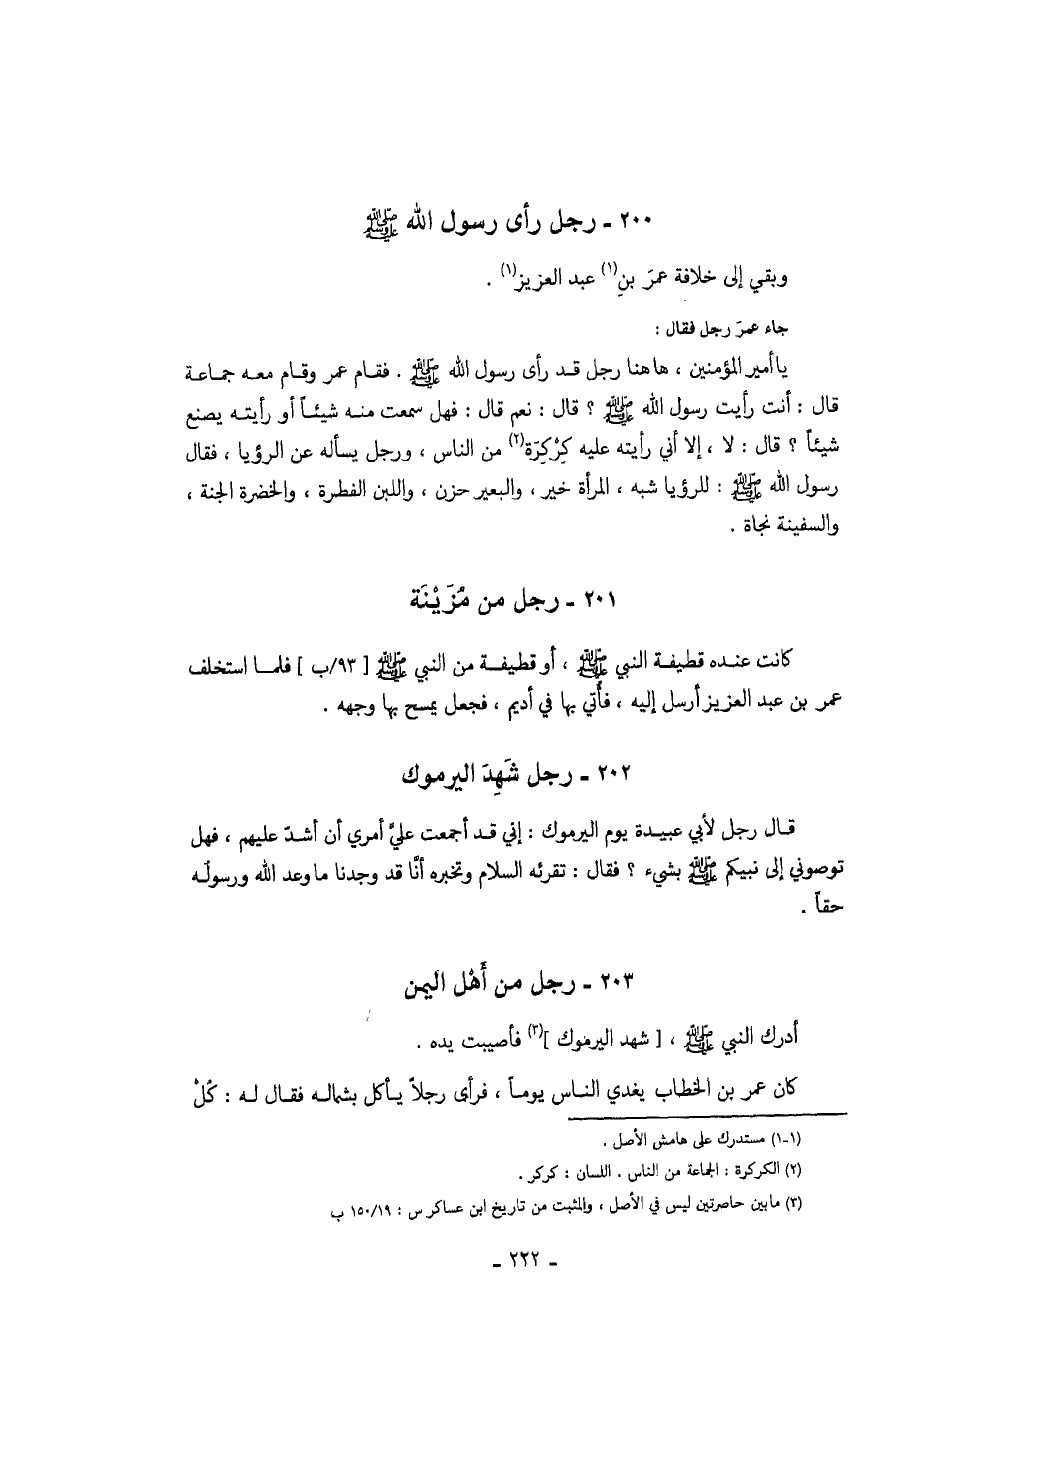 ٢٠٠ ـ رجل رأى رسول الله ﷺ
وبقي إلى خلافة عمرَ بنِ(١) عبد العزيز(١) .
جاء عمرَ رجل فقال :
ياأمير المؤمنين ، هاهنا رجل قد رأى رسول الله ﷺ . فقام عمر وقام معه جماعة
قال : أنت رأيت رسول الله ﷺ ؟ قال : نعم قال : فهل سمعت منه شيئاً أو رأيته يصنع
شيئاً ؟ قال : لا ، إلا أني رأيته عليه كِرْكِرَة(٢) من الناس ، ورجل يسأله عن الرؤيا ، فقال
رسول الله ﷺ : للرؤيا شبه ، المرأة خير ، والبعير حزن ، واللبن الفطرة ، والخضرة الجنة ،
والسفينة نجاة .
٢٠١ ـ رجل من مُزَيْنَة
كانت عنده قطيفة النبي ﷺ ، أو قطيفة من النبي ﷺ [ ٩٣/ب ] فلما استخلف
عمر بن عبد العزيز أرسل إليه ، فأُتي بها في أديم ، فجعل يمسح بها وجهه .
٢٠٢ ـ رجل شَهِدَ اليرموك
قال رجل لأبي عبيدة يوم اليرموك : إني قد أجمعت عليَّ أمري أن أشدّ عليهم ، فهل
توصوني إلى نبيكم ﷺ بشيء ؟ فقال : تقرئه السلام وتخبره أنَّا قد وجدنا ماوعد الله ورسولُه
حقاً .
٢٠٣ ـ رجل من أَهْل اليمن
أدرك النبي ﷺ ، [ شهد اليرموك ](٣) فأصيبت يده .
كان عمر بن الخطاب يغدي الناس يوماً ، فرأى رجلاً يأكل بشماله فقال له : كُلْ
(١-١) مستدرك على هامش الأصل .
(٢) الكركرة : الجماعة من الناس . اللسان : كركر .
(٣) مابين حاصرتين ليس في الأصل ، والمثبت من تاريخ ابن عساكر س : ١٥٠/١٩ ب
ـ ٢٢٢ ـ